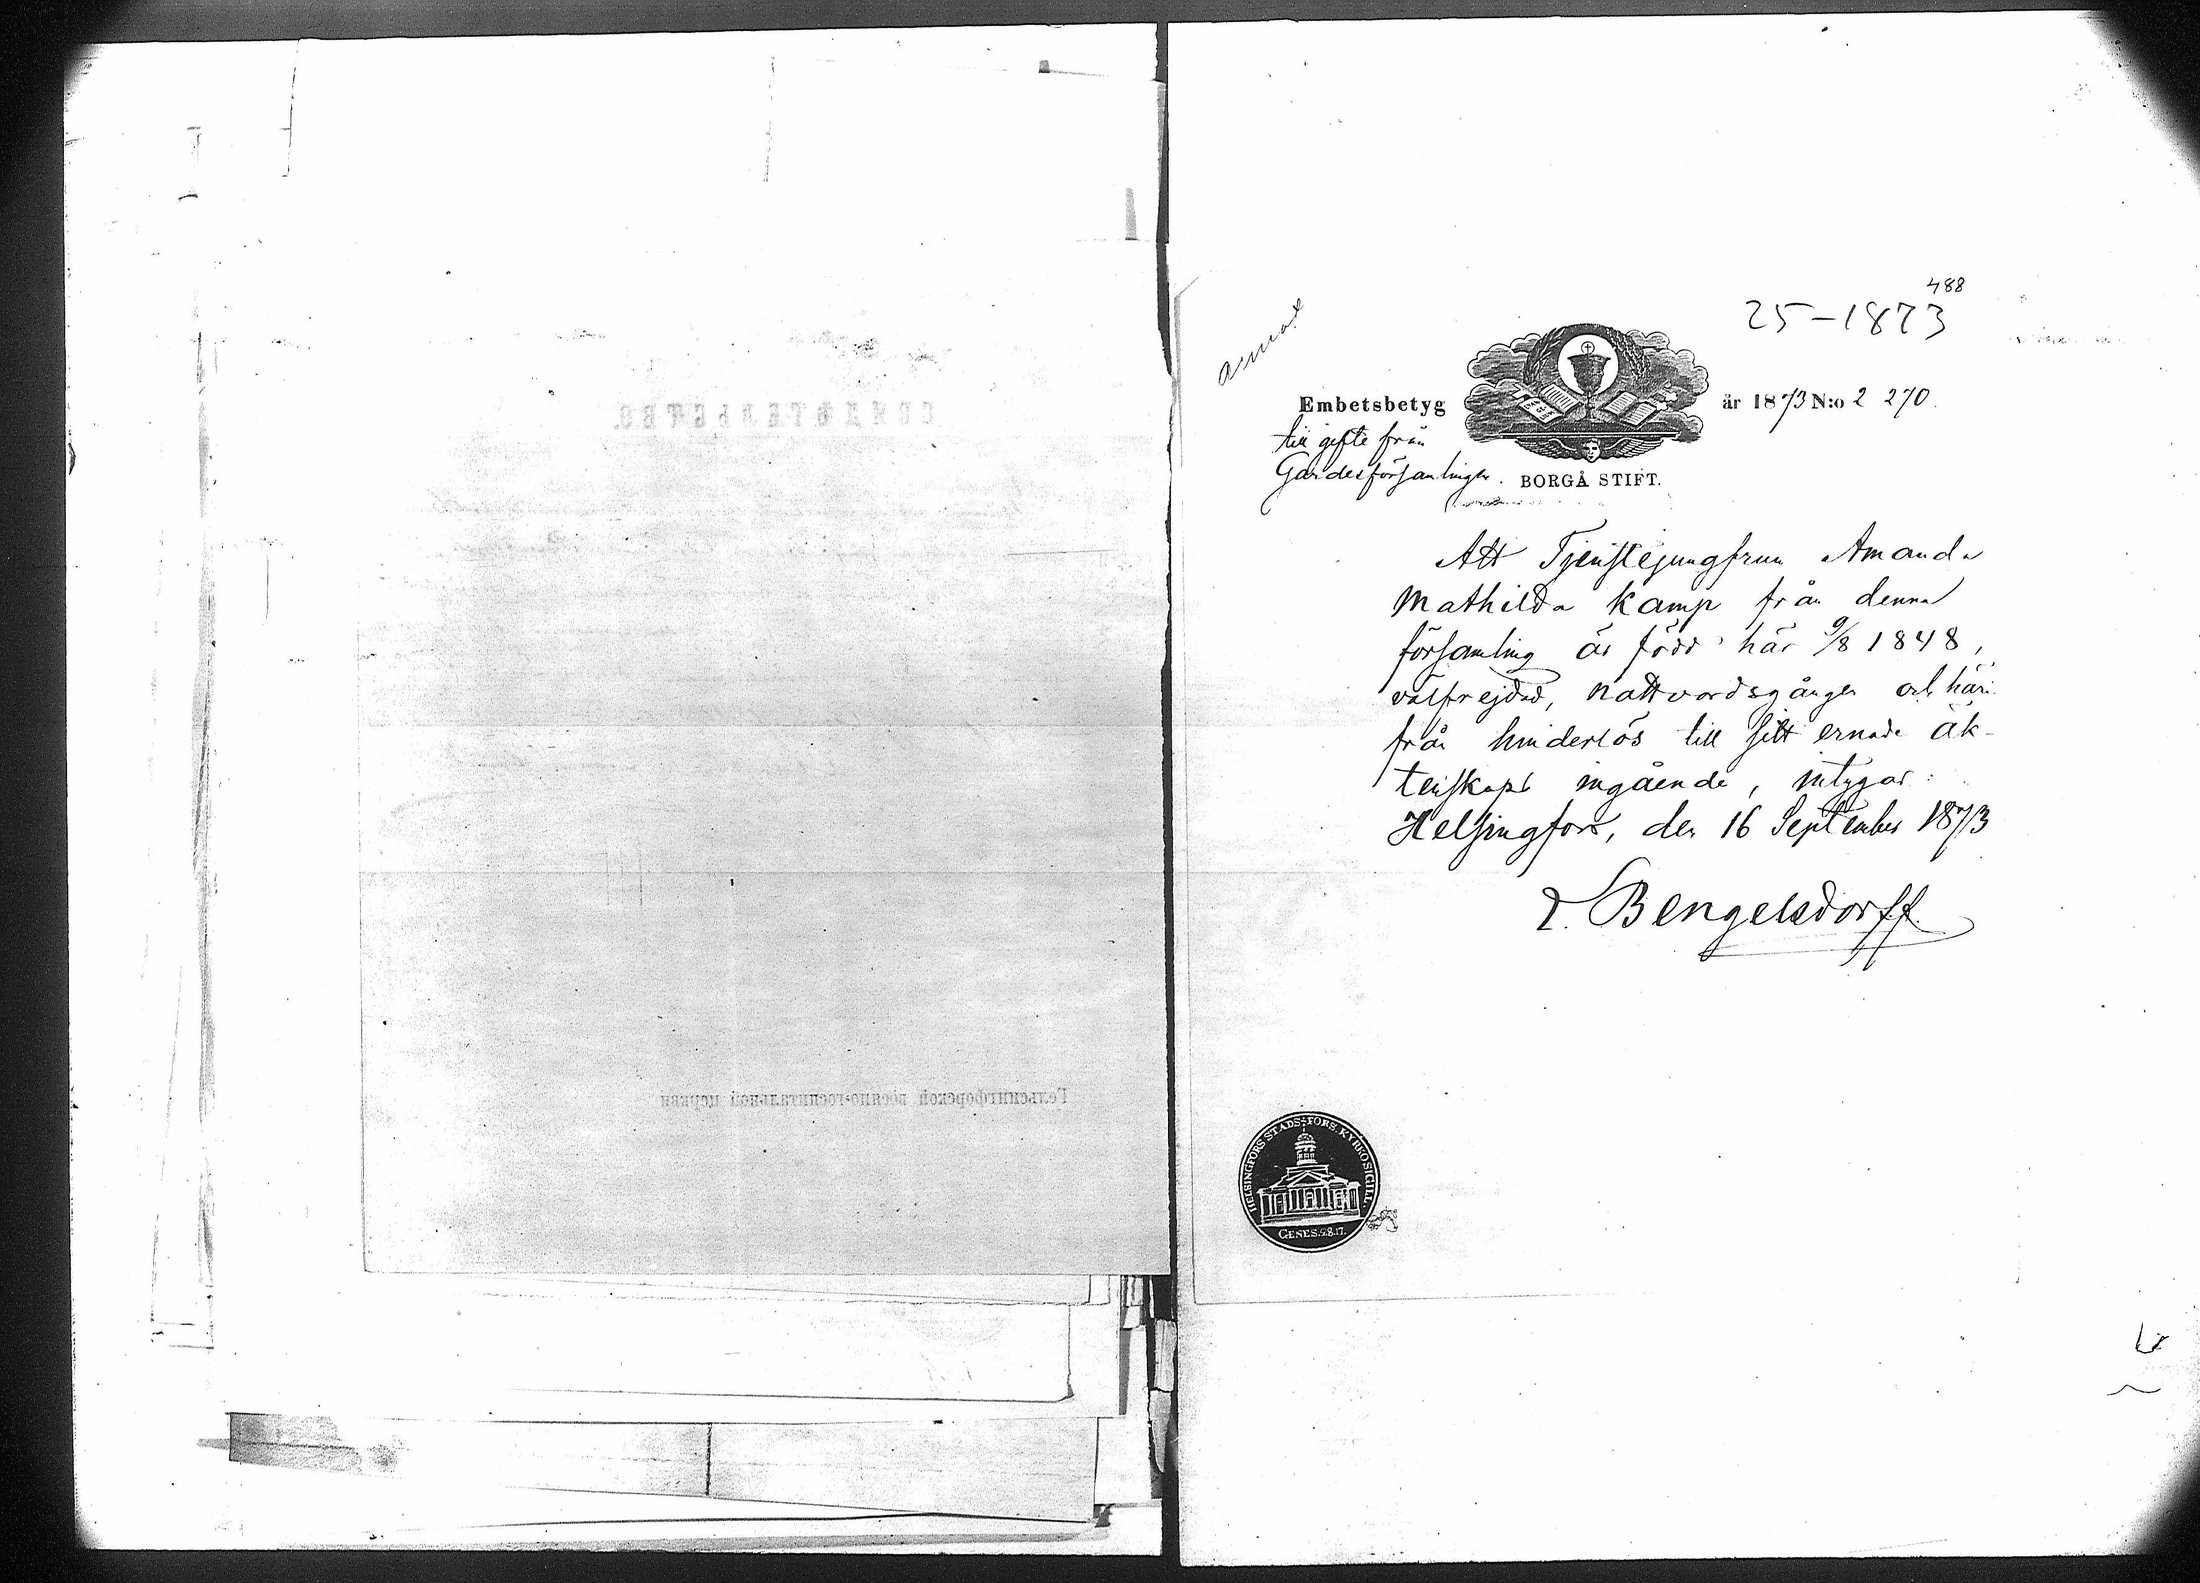 СВИДѢТЕЛЬСТВО.
Гельсингфорской военно-госпитальной церкви
488
25-1873
Embetsbetyg
år 1873 N:o 2 270.
till gifte från
Gardesförsamlingen.
BORGÅ STIFT.
Att Tjenstejungfrun Amanda
Mathilda Kamp från denna
församling är född här 9/8 1848,
välfrejdad, nattvardsgången och häri-
från hinderlös till sitt ernade äk-
tenskaps ingående, intygar:
Helsingfors, den 16 September 1873
Bengelsdorff.
HELSINGFORS STADS-FÖRS. KYRKOSIGILL.
GENES. 28.17.